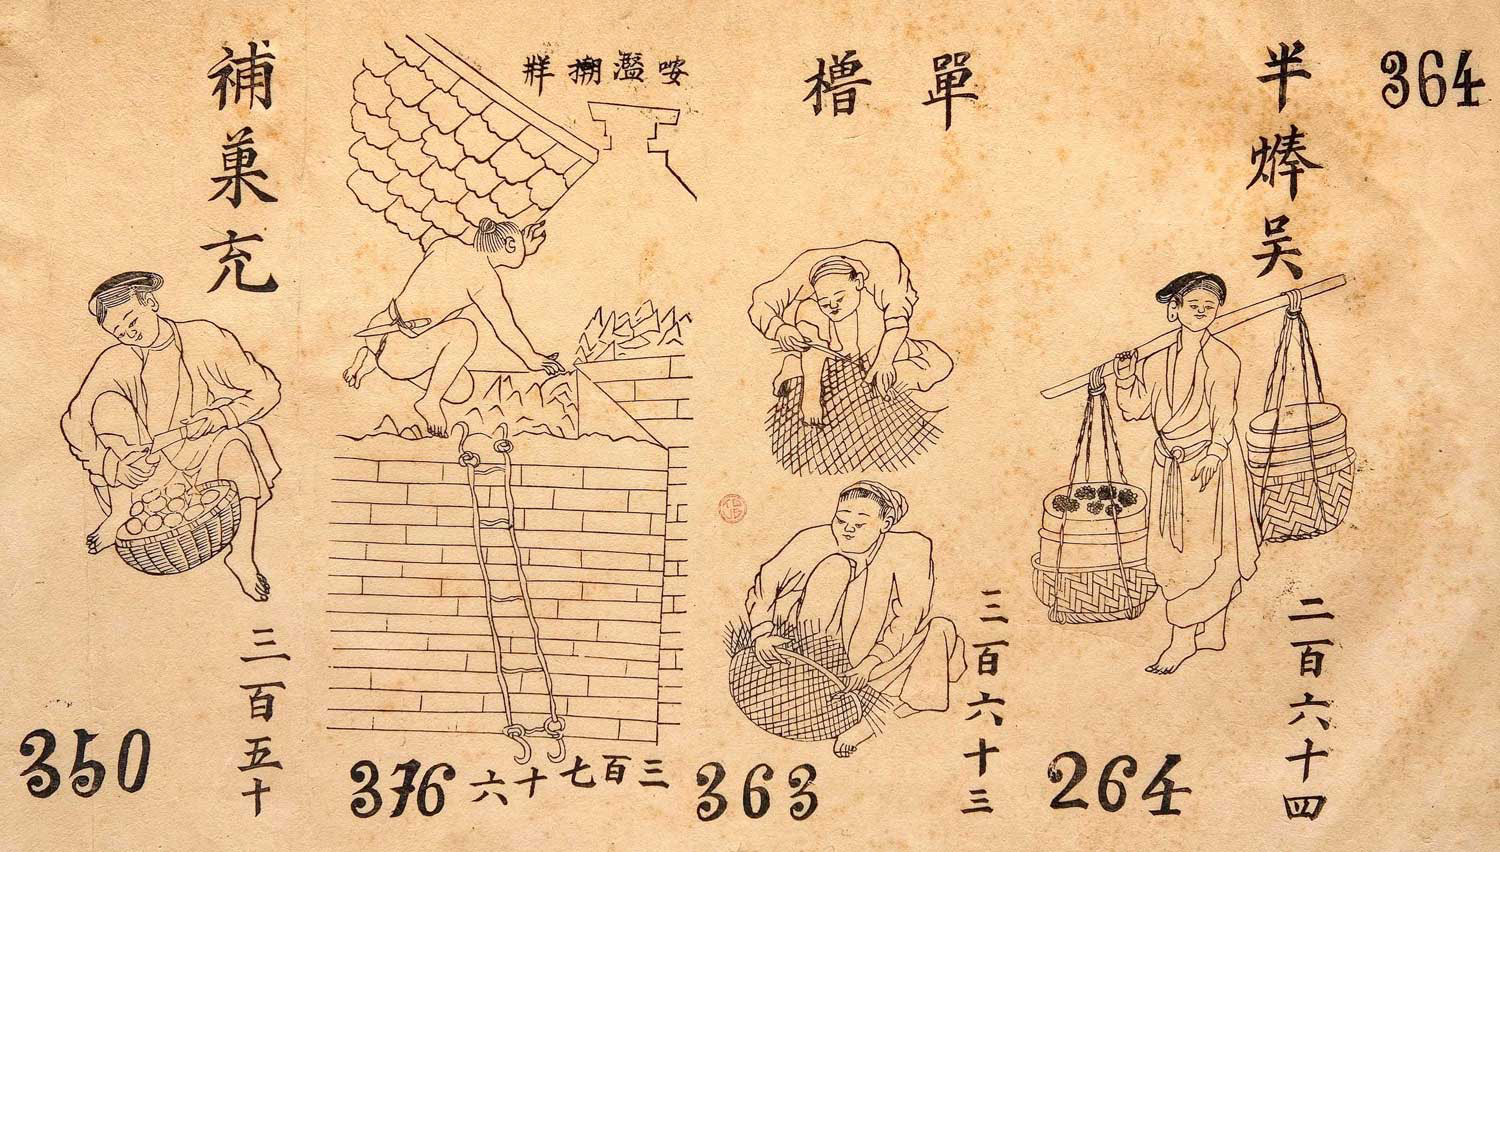 364
半㷯吴
二百六十四
264
單橹
三百六十三
363
咹灆搠牂
三百七十六
376
補巢充
三百五十
350